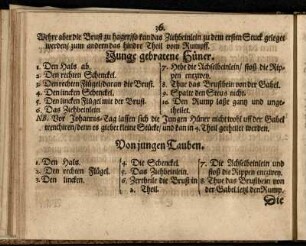 36.
Wehre aber die Brust zu hager/so kan das Ziehbeinlein zu dem ersten Stuck geleget
werden/ zum andern das hindre Theil vom Rumpff.
Junge gebratene Hüner.
1. Den Hals ab.
2. Den rechten Schenckel.
3. Den rechten Flügel/daran die Brust.
4. Den lincken Schenckel.
5. Den lincken Flügel mit der Brust.
6. Das Ziehbeinlein.
7. Hebe die Achselbeinlein/ stoß die Rippen
entzwey.
8. Thue das Brustbein von der Gabel.
9. Spalte den Stroß nicht.
10. Den Rump lasse gantz und unge-
theilet.
NB. Vor Johannis-Tag lassen sich die Jungen Hüner nicht wohl uff der Gabel
trenchiren/denn es giebet kleine Stücke/ und kan in 4. Theil getheilet werden.
Von jungen Tauben.
1. Den Hals.
2. Den rechten Flügel.
3. Den lincken.
4. Die Schenckel.
5. Das Ziehbeinlein.
6. Zertheile die Brust in
2. Theil.
7. Die Achselbeinlein und
stoß die Rippen entzwey.
8. Thue das Brustbein von
der Gabel, letzl den Rump.
Die